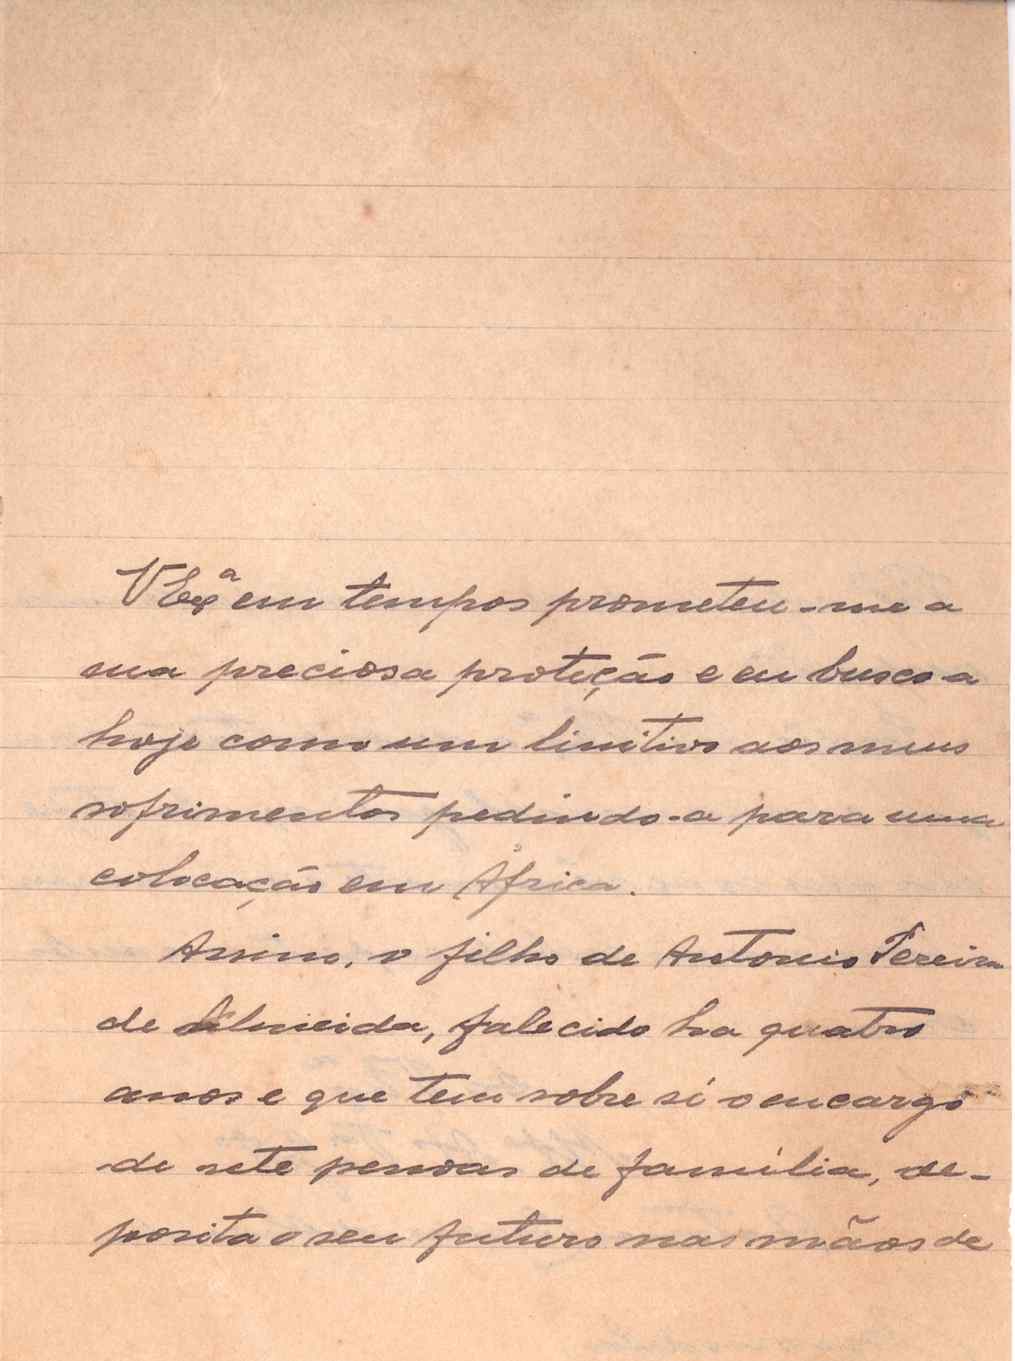 VExª em tempos prometeu-me a
sua preciosa proteção e eu busco-a
hoje como um linitivo aos meus
sofrimentos pedindo-a para uma
colocação em África.
Assim, o filho de Antonio Pereira
de Almeida, falecido ha quatro
anos e que tem sobre si o encargo
de sete pessoas de família, de-
posita o seu futuro nas mãos de